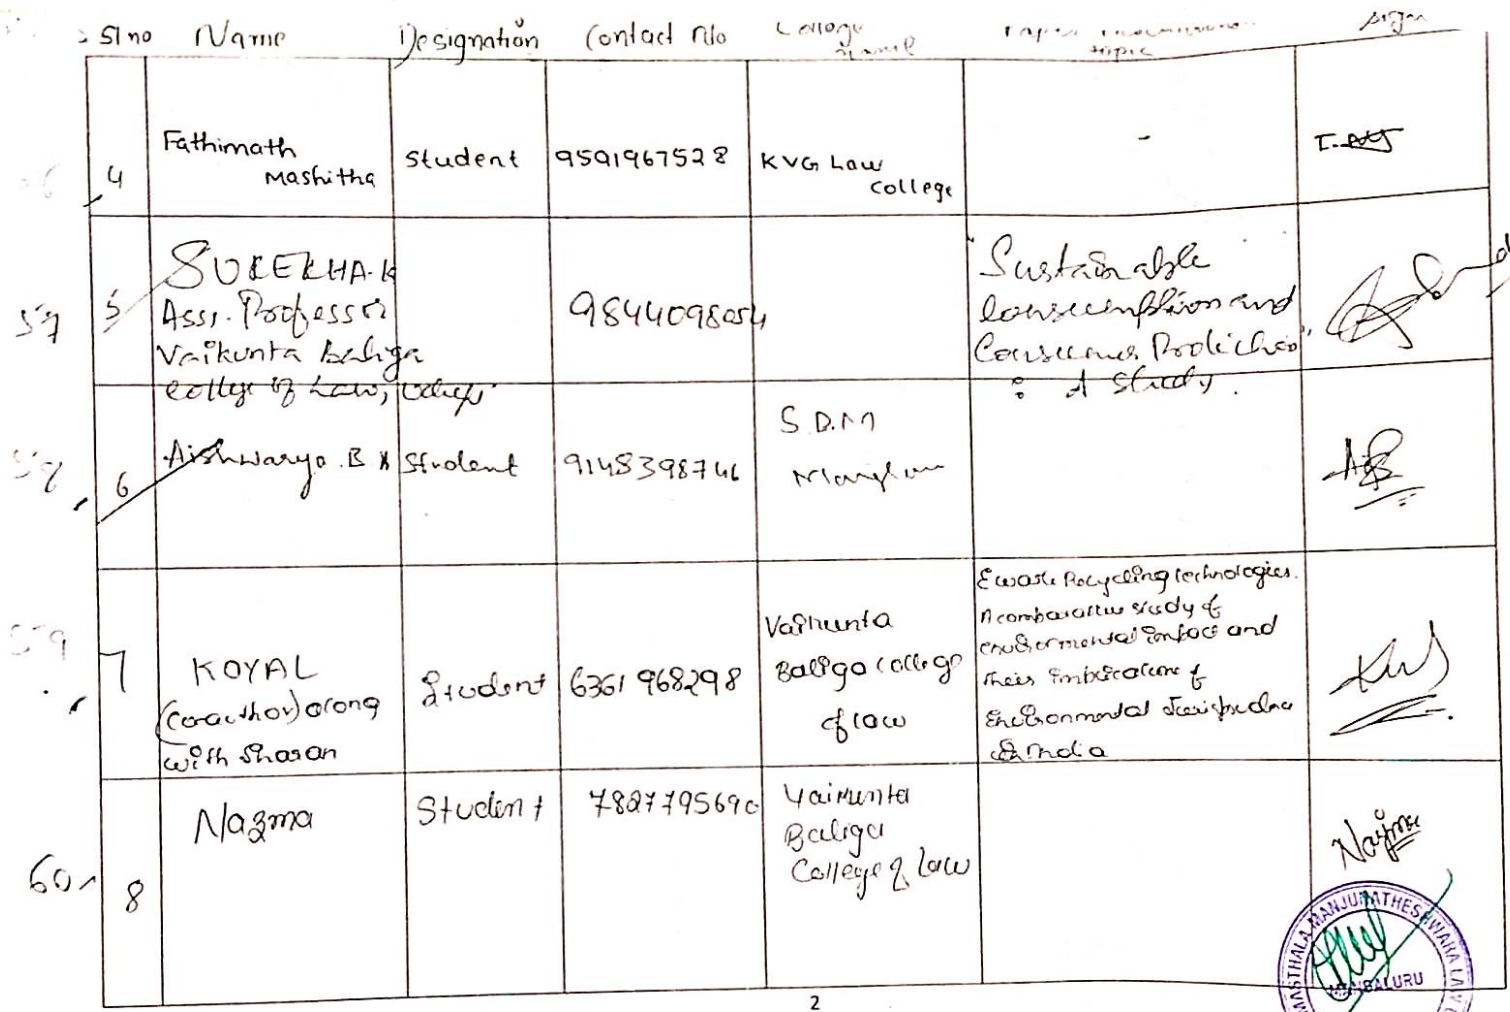 Sl no Name Designation Contact No College Name Paper topic Sign
4 Fathimath Mashitha Student 9591967528 KVG Law College -
57 5 SUREKHA.K
Assi. Professor
Vaikunta Baliga
College of Law, Udupi
9844098054
"Sustainable
Consumption and
Consumer Protection"
: A Study.
58 6 Aishwarya.B.K Student 9148398746 S.D.M
59 7 KOYAL
(co-author) along
with Sharan
Student 6361968298
Vaikunta
Baliga College
of law
Ewaste Recycling technologies.
A comparative study of
environmental impact and
their implications of
Environmental Jurisprudence
in India
60 8 Nazma Student 7827795690
Vaikunta
Baliga
College of Law
Najma
MANJUNATHESHWARA LAW
2